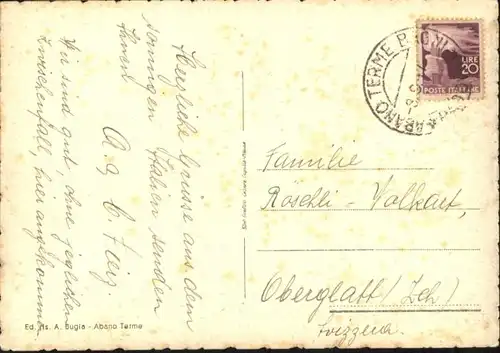 Herzliche Grüsse aus dem
sonnigen Italien senden
Ihnen
Wir sind gut, ohne jeglichen
Zwischenfall, hier angekommen
Ed. A. Bugia - Abano Terme
ABANO TERME
LIRE
20
POSTE ITALIANE
Familie
Röschli-Volkart,
Oberglatt (Zch)
Svizzera.